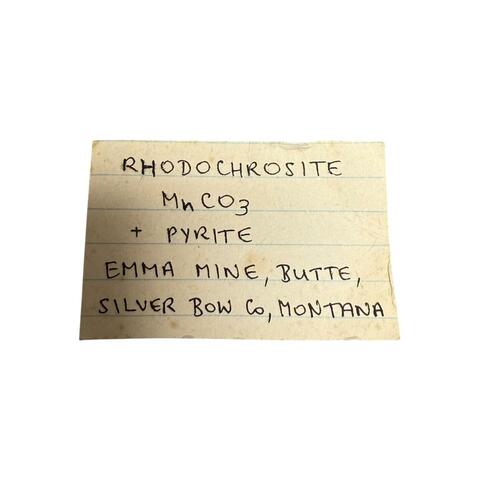 RHODOCHROSITE
MnCO3
+ PYRITE
EMMA MINE, BUTTE,
SILVER BOW Co, MONTANA